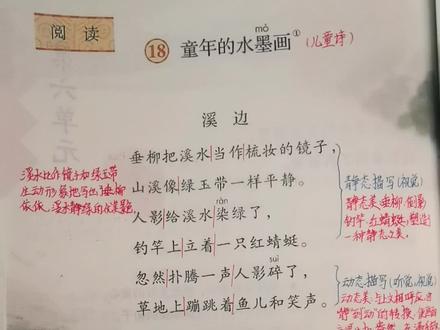 阅 读
⑱ 童年的水墨画①
mò
(儿童诗)
溪 边
垂柳把溪水当作梳妆的镜子，
山溪像绿玉带一样平静。
人影给溪水染绿了，
rǎn
钓竿上立着一只红蜻蜓。
忽然扑腾一声人影碎了，
suì
草地上蹦跳着鱼儿和笑声。
溪水比作镜子和绿玉带
生动形象地写出了垂柳
依依、溪水静绿的优美
静态描写(视觉)
静态美:垂柳、倒影
钓竿、红蜻蜓;塑造
一种静态之美。
动态描写(听觉,视觉)
动态美:与上文相呼应
"静"到"动"的转换,
六单元